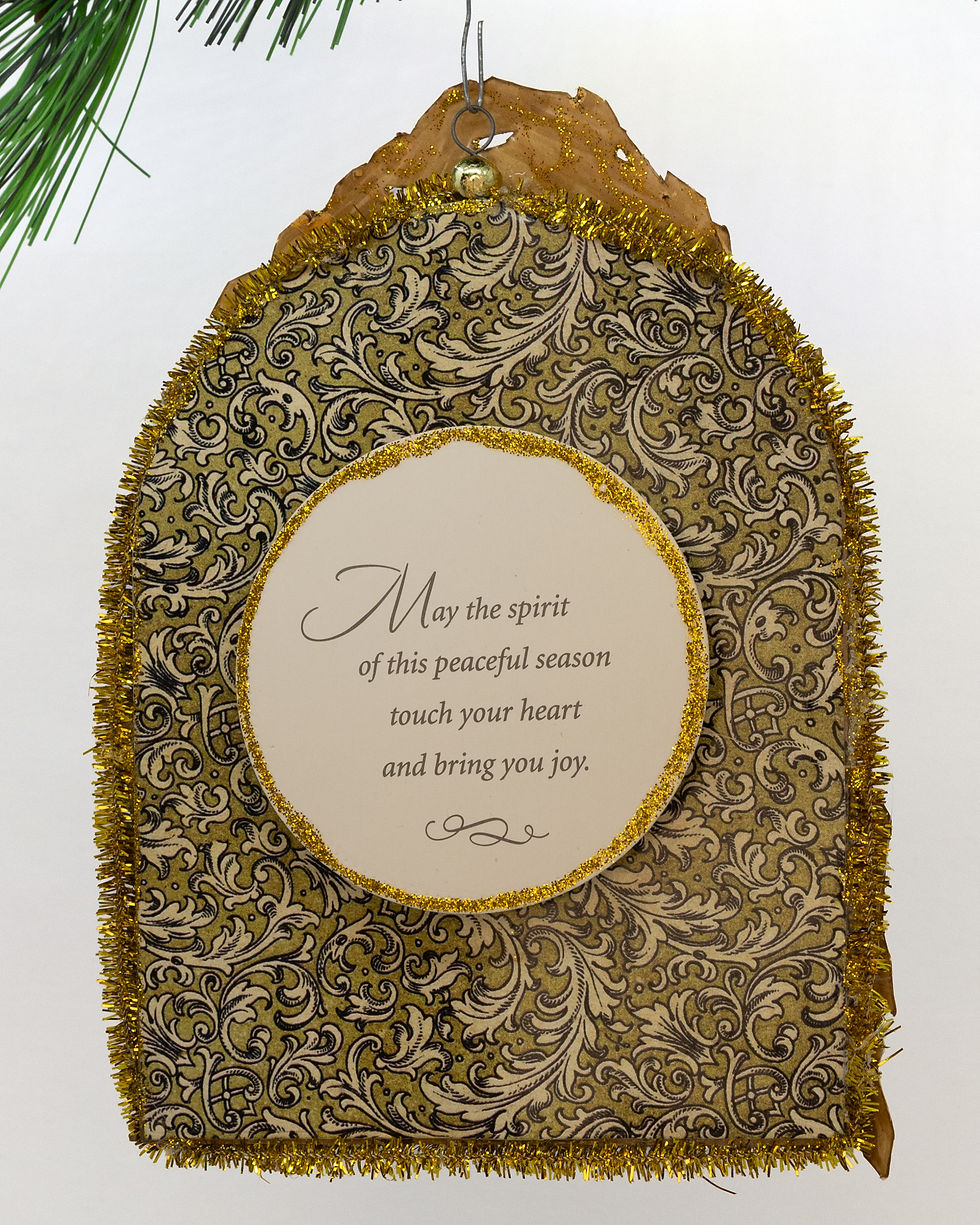 May the spirit
of this peaceful season
touch your heart
and bring you joy.